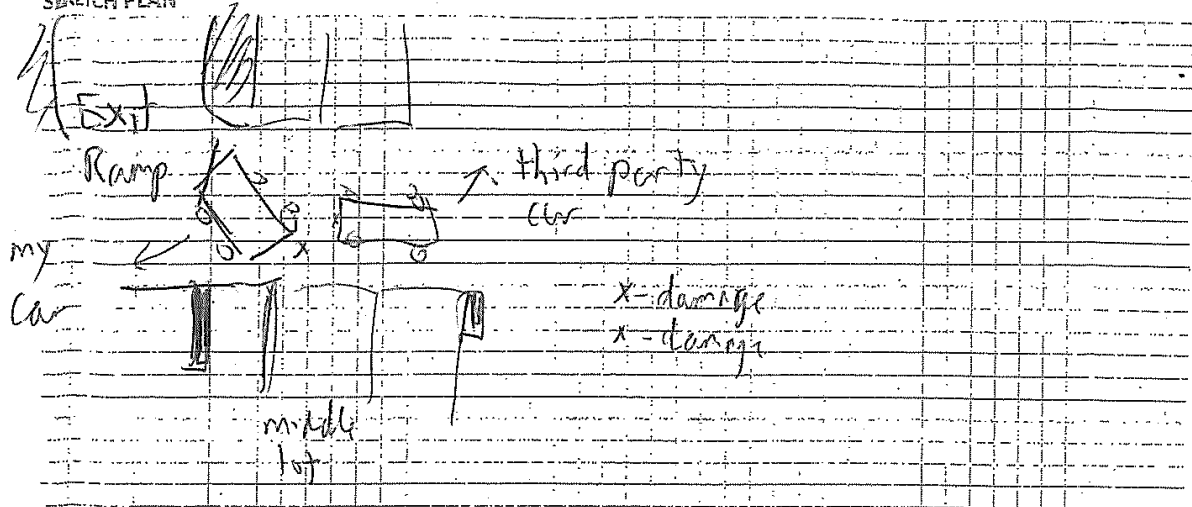 SKETCH PLAN
Exit
Ramp
third party
car
my
Car
x
x-damage
x-damage
middle
lot